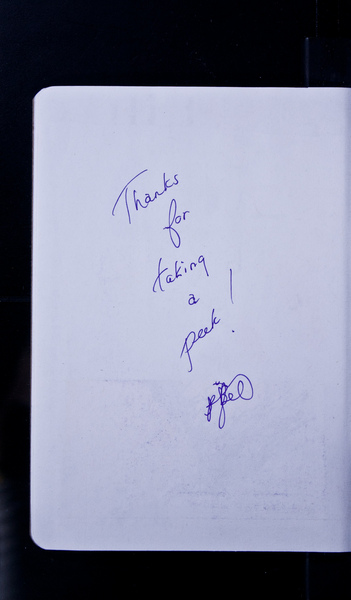 Thanks
for
taking
a
peek!